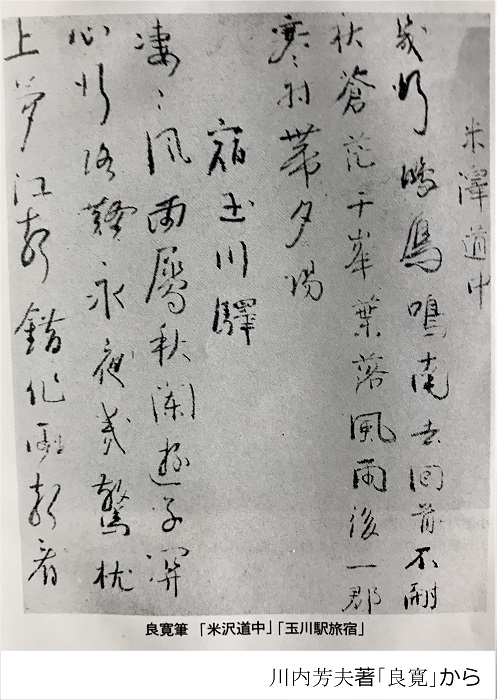 米澤道中
幾行鴻鴈鳴南去回首不耐
秋蒼茫千峯葉落風雨後一郡
寒村帯夕陽
宿玉川驛
凄〻風雨屬秋闌遊子関
心行路難永夜幾驚枕
上夢江声錯作雨声看
良寛筆 「米沢道中」「玉川駅旅宿」
川内芳夫著「良寛」から